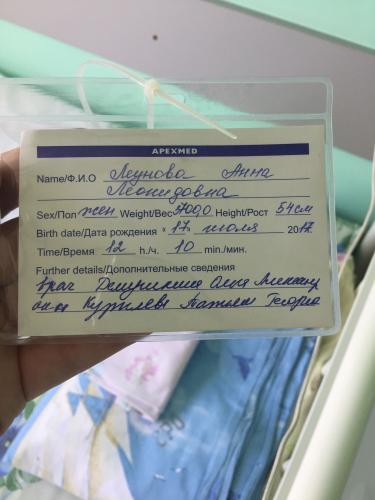 APEXMED
Name/Ф.И.О Леунова Анна
Леонидовна
Sex/Пол жен Weight/Вес 3700,0 Height/Рост 54см
Birth date/Дата рождения " 17 " июля 2017
Time/Время 12 h./ч. 10 min./мин.
Further details/Дополнительные сведения
Врач Олеся
Курилева Наталья Георг